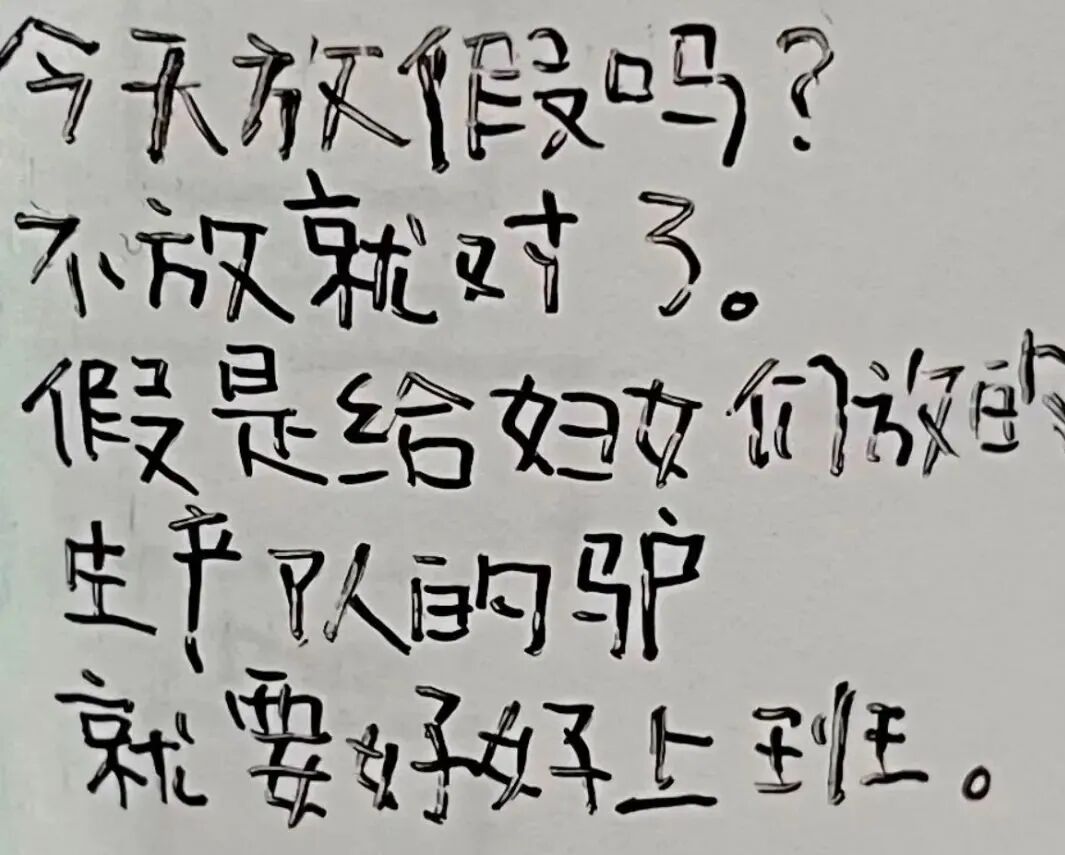 今天放假吗?
不放就对了。
假是给妇女们放的
生产队的驴
就要好好上班。